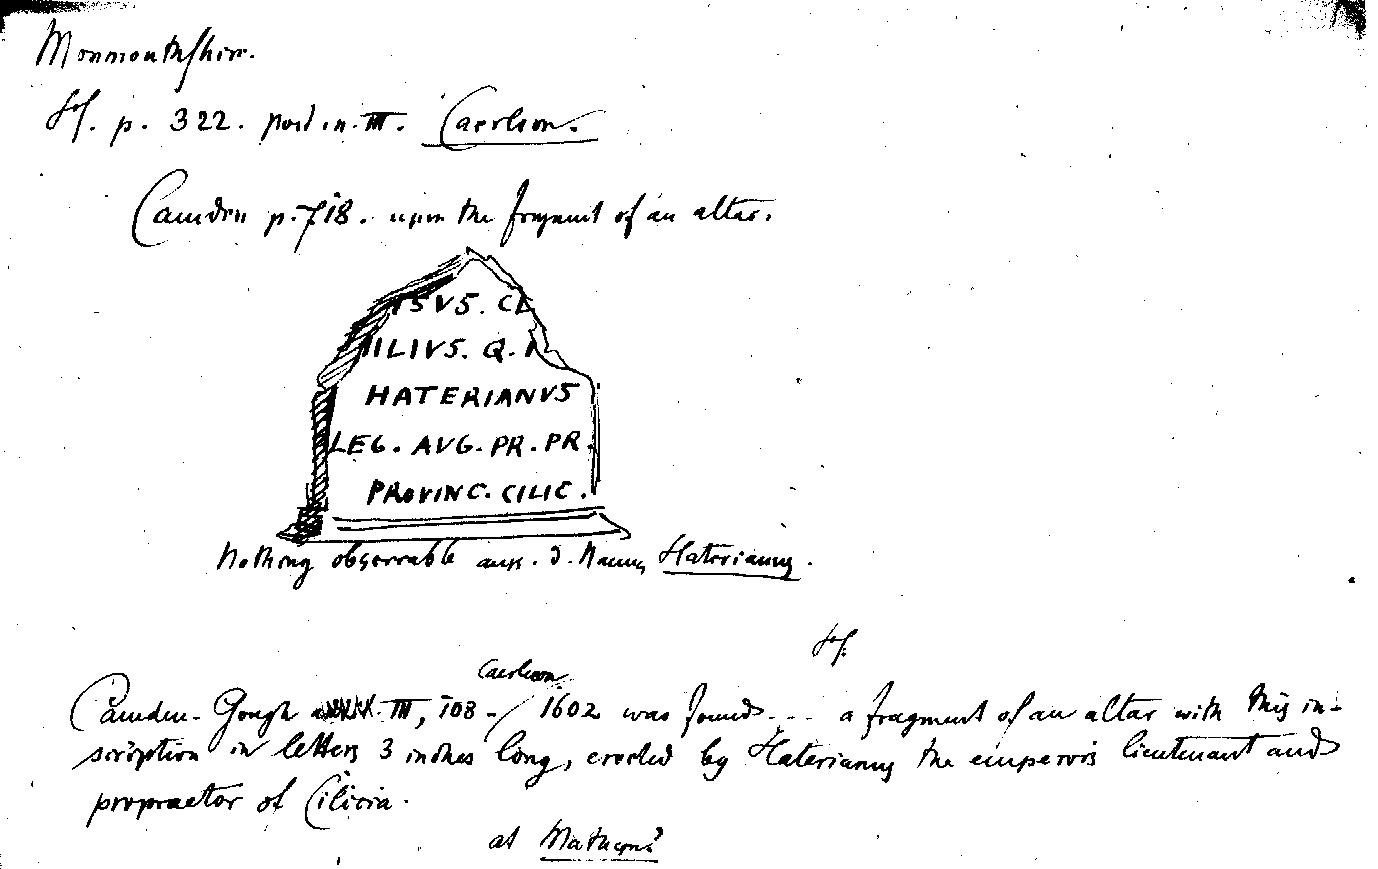 Monmouthshire.
Hf. p. 322. post in. III. Caerleon.
Camden p. 718. upon the fragment of an altar.
SVS. CL
ILIVS. Q.
HATERIANVS
LEG. AVG. PR. PR.
PROVINC. CILIC.
Nothing observable Haterianus.
Hf.
Caerleon.
Camden-Gough III, 108 - 1602 was found --- a fragment of an altar with this in-
scription in letters 3 inches long, erected by Haterianus the emperors lieutenant and
propraetor of Cilicia.
at